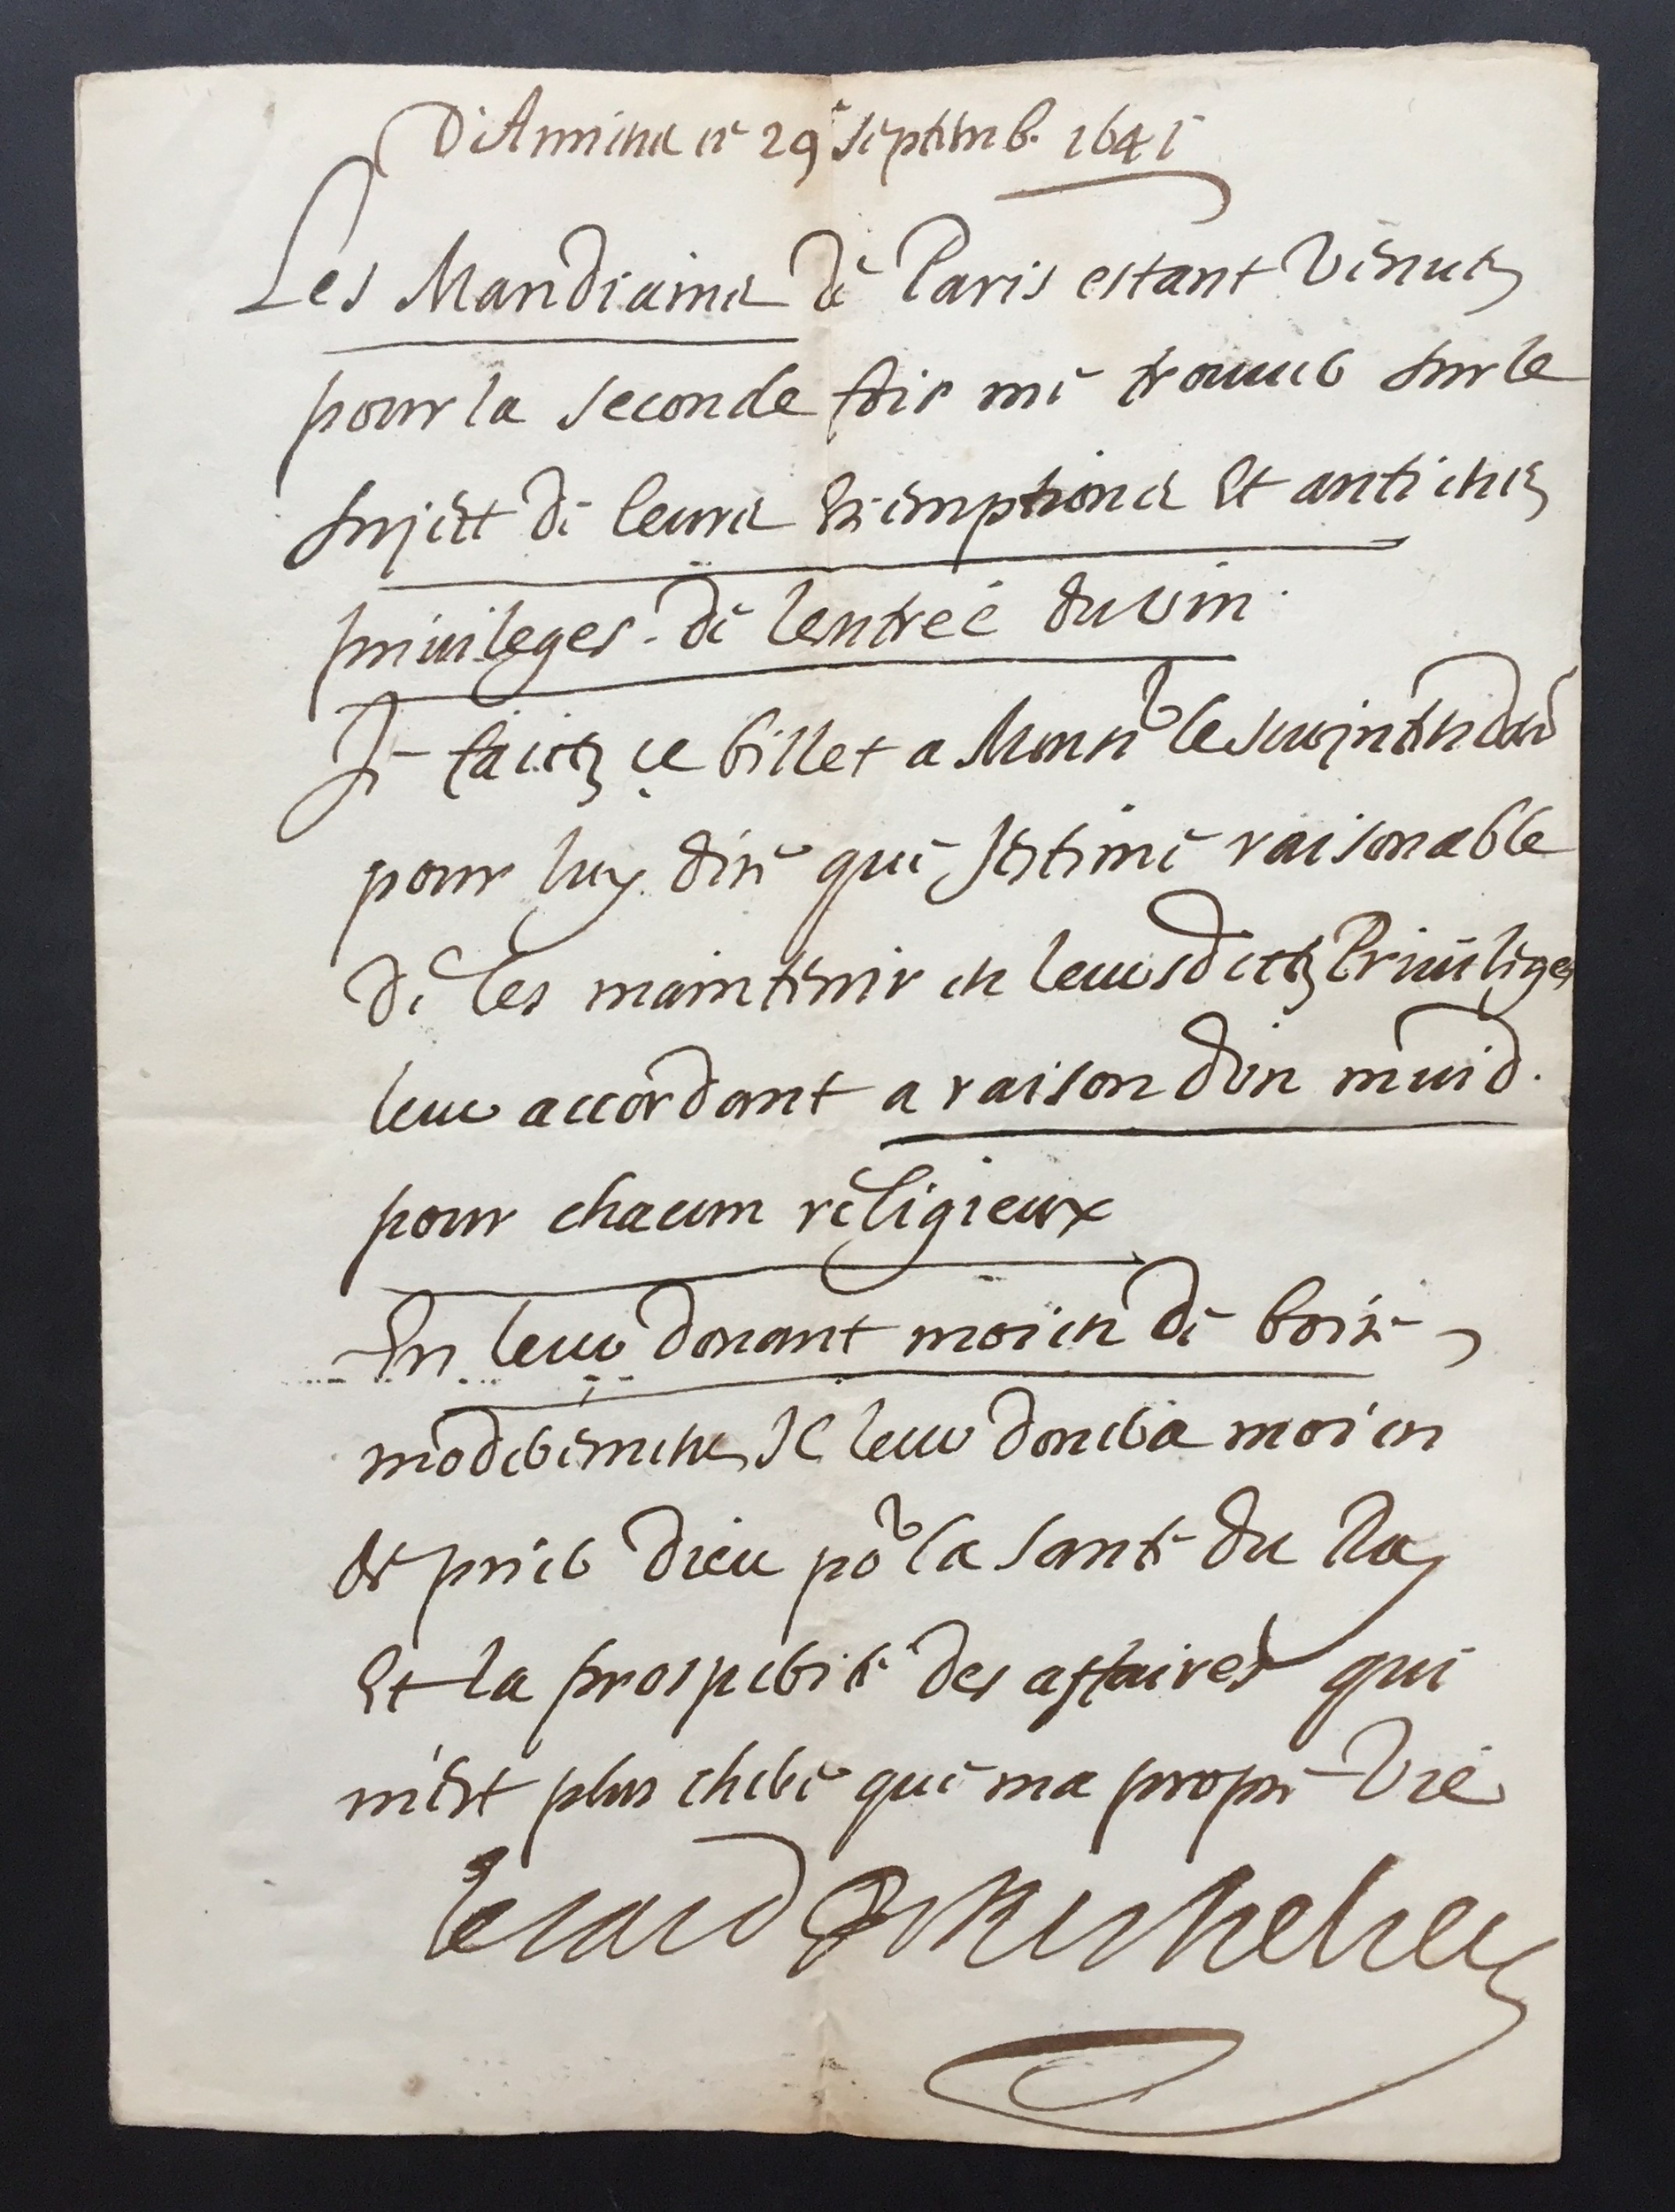 D'Amiens ce 29e septemb. 1641
Les Mandians de Paris estant venus
pour la seconde fois me trouuer sur le
sujett de leurs exemptions et antienes
priuileges de lentrée du vin
Je faictz ce billet a Monsr le surintendant
pour luy dire que Jestime raisonable
de les maintenir en leursdictz Priuileges
leur accordant a raison dun muid
pour chacun religieux
En leur donant moien de boire
moderement Il leur donera moien
de prier Dieu por la santé du Roy
et la prosperité des affaires qui
mest plus chere que ma propre vie
le card de Richelieu